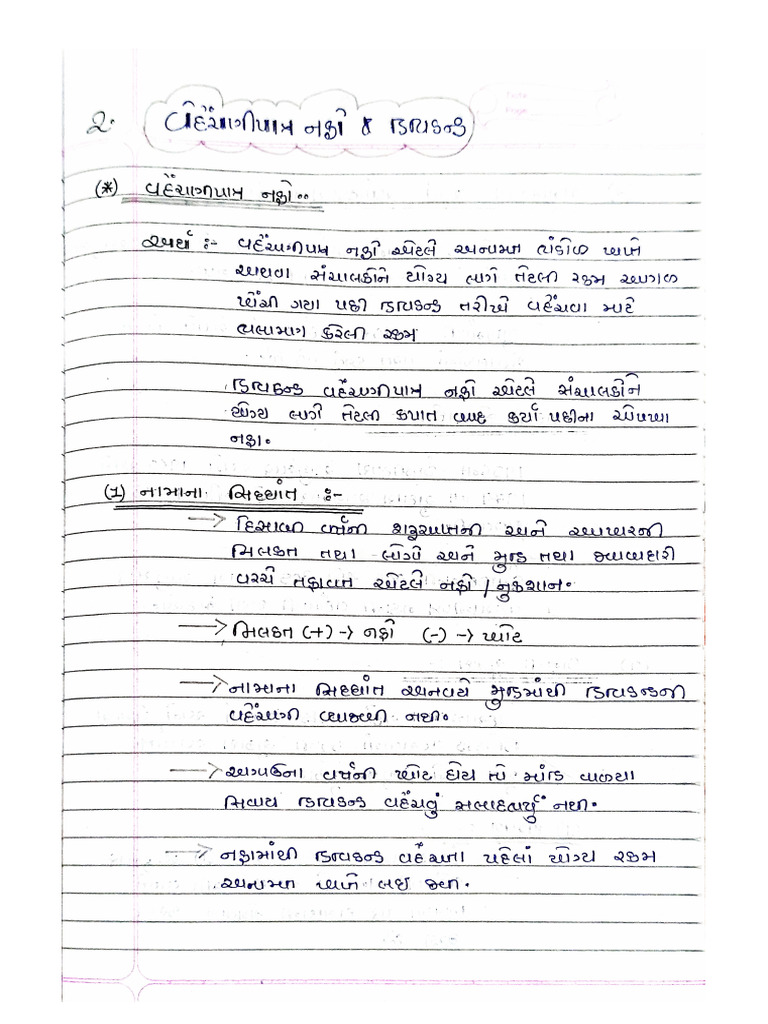 2. વહેંચણીપાત્ર નફો & ડિવિડન્ડ
(*) વહેંચણીપાત્ર નફો..
અર્થ :- વહેંચણીપાત્ર નફો એટલે અનામત ભંડોળ ખાતે
અથવા સંચાલકોને યોગ્ય લાગે તેટલી રકમ આગળ
ખેંચી ગયા પછી ડિવિડન્ડ તરીકે વહેંચવા માટે
ભલામણ કરેલી રકમ
ડિવિડન્ડ વહેંચણીપાત્ર નફો એટલે સંચાલકોને
યોગ્ય લાગે તેટલી કપાત બાદ કર્યા પછીના ચોખ્ખા
નફા.
(1) નામાના સિધ્ધાંત :-
→ હિસાબી વર્ષની શરૂઆતની અને આખરની
મિલકત તથા અને મુડી તથા જવાબદારી
વચ્ચે તફાવત એટલે નફો / નુકશાન.
→ મિલકત (+) -> નફો (-) -> ખોટ
→ નામાના સિધ્ધાંત અન્વયે મુડીમાંથી ડિવિડન્ડની
વહેંચણી વ્યાજબી નથી.
→ અગાઉના વર્ષની ખોટ હોય તો માંડી વાળ્યા
સિવાય ડિવિડન્ડ વહેંચવું સલાહભર્યું નથી.
→ નફામાંથી ડિવિડન્ડ વહેંચતા પહેલાં યોગ્ય રકમ
અનામત ખાતે લઈ જવી.